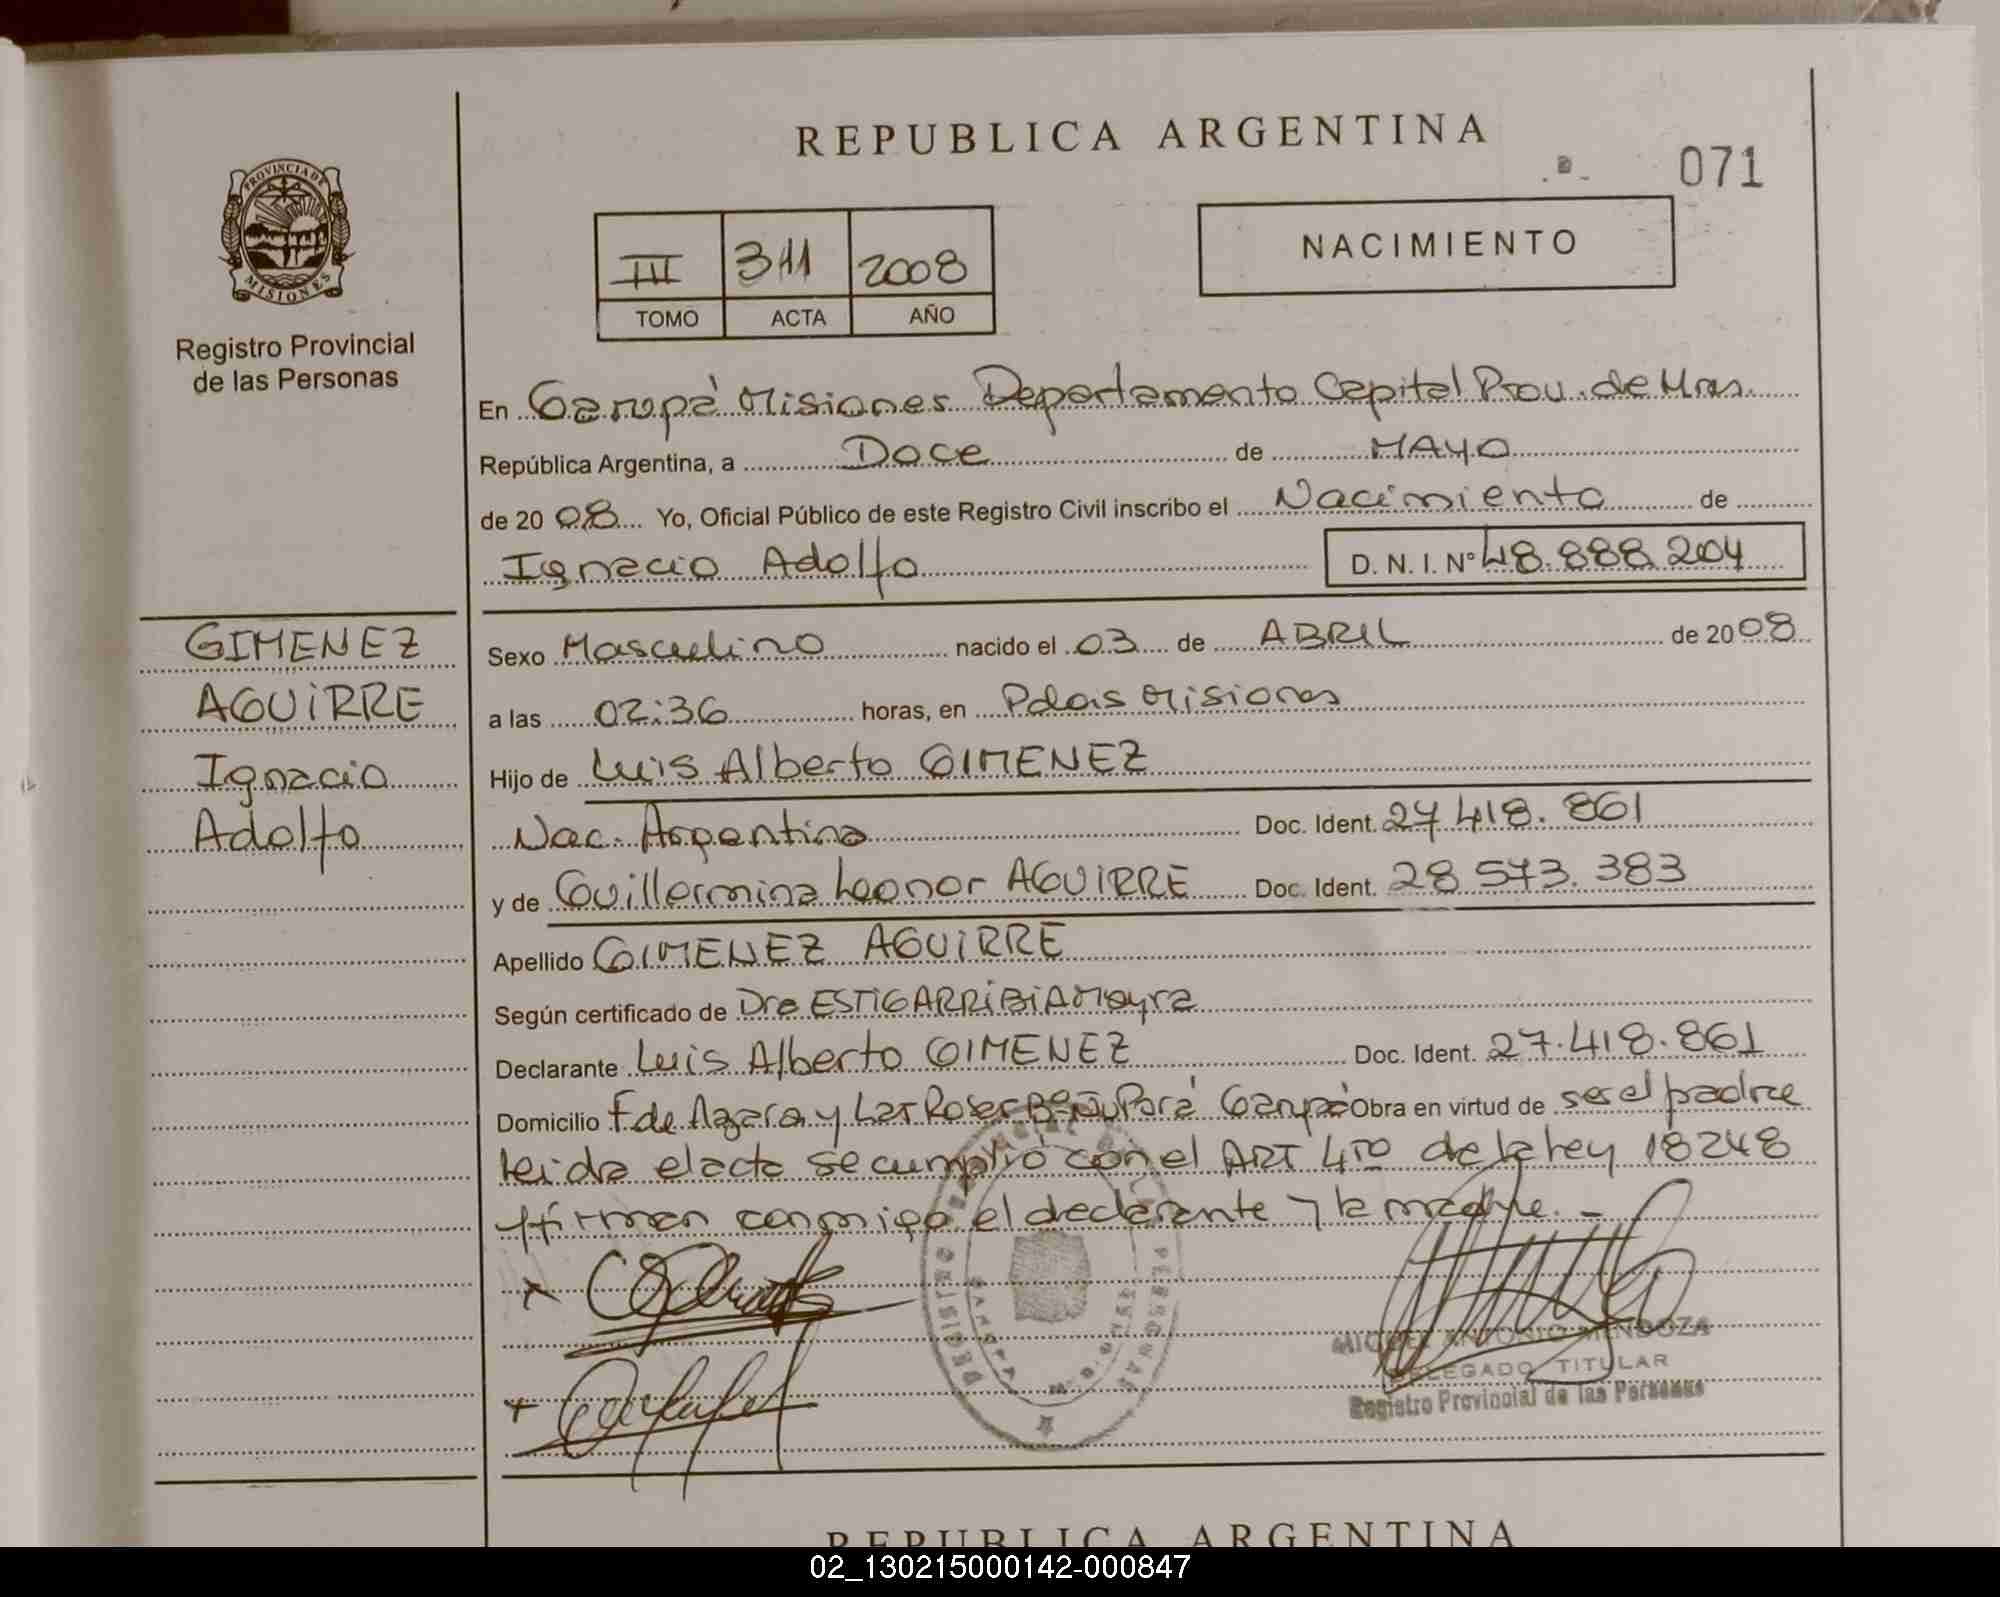 REPUBLICA ARGENTINA
071
PROVINCIA DE
MISIONES
Registro Provincial
de las Personas
III 311 2008
TOMO ACTA AÑO
NACIMIENTO
En Garupá Misiones Departamento Capital Prov. de Mnes.
República Argentina, a Doce de MAYO
de 2008 Yo, Oficial Público de este Registro Civil inscribo el Nacimiento de
Ignacio Adolfo D. N. I. Nº 48.888.204
GIMENEZ
AGUIRRE
Ignacio
Adolfo
Sexo Masculino nacido el 03 de ABRIL de 2008
a las 02:36 horas, en Pdas Misiones
Hijo de Luis Alberto GIMENEZ
Nac. Argentina Doc. Ident. 27 418. 861
y de Guillermina Leonor AGUIRRE Doc. Ident. 28 573. 383
Apellido GIMENEZ AGUIRRE
Según certificado de Dra ESTIGARRIBIA Mayra
Declarante Luis Alberto GIMENEZ Doc. Ident. 27.418.861
Domicilio F de Azara y Las Rosas Bº Ñu Porá Garupá Obra en virtud de ser el padre
Leida el acta se cumplió con el ART 4to de la Ley 18248
firman conmigo el declarante y la madre. -
MIGUEL ANTONIO MENDOZA
DELEGADO TITULAR
Registro Provincial de las Personas
REPUBLICA ARGENTINA
02_130215000142-000847